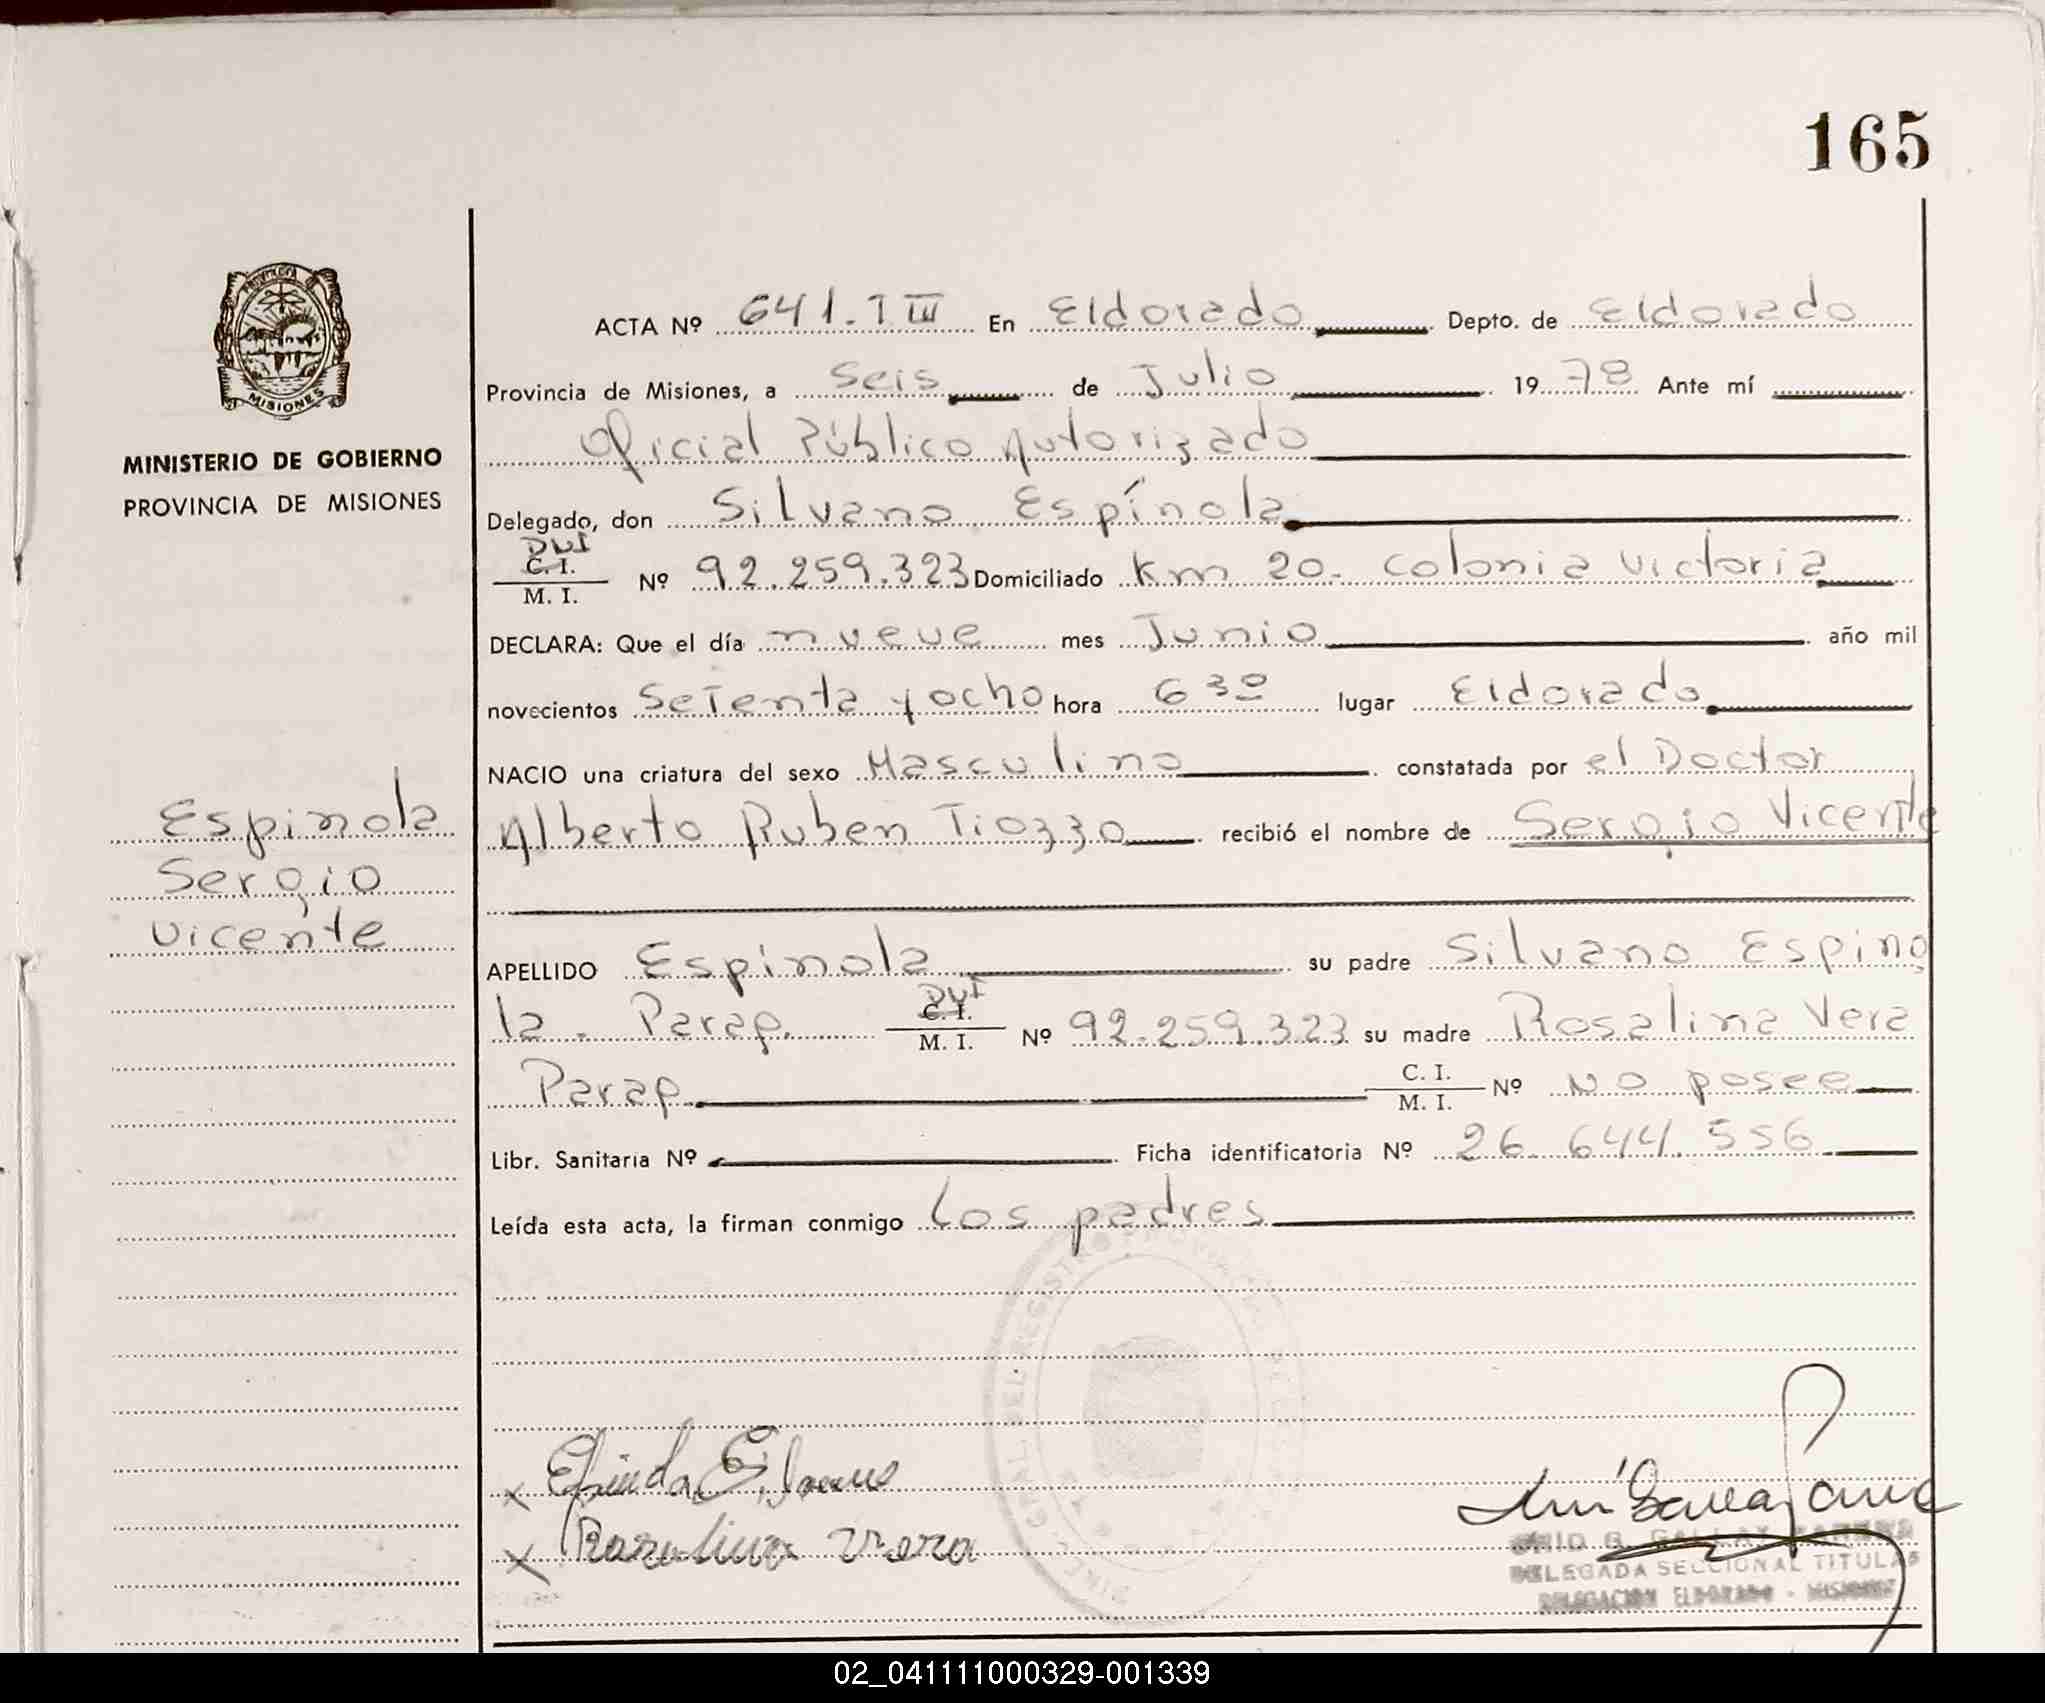 165
ACTA Nº 641. T III En Eldorado Depto. de Eldorado
Provincia de Misiones, a Seis de Julio 1978 Ante mí
Oficial Público Autorizado
MINISTERIO DE GOBIERNO
PROVINCIA DE MISIONES
MISIONES
Delegado, don Silvano Espínola
DNI
C. I.
M. I. Nº 92.259.323 Domiciliado Km 20. Colonia Victoria
DECLARA: Que el día nueve mes Junio año mil
novecientos Setenta y ocho hora 6 30 lugar Eldorado
NACIO una criatura del sexo Masculino constatada por el Doctor
Alberto Ruben Tiozzo recibió el nombre de Sergio Vicente
Espinola
Sergio
Vicente
APELLIDO Espinola su padre Silvano Espino
la. Parag. DNI C. I. M. I. Nº 92.259.323 su madre Rosalina Vera
Parag. C. I. M. I. Nº No posee
Libr. Sanitaria Nº Ficha identificatoria Nº 26.644.556
Leída esta acta, la firman conmigo Los padres
x
x Rosalina Vera
DELEGADA SECCIONAL TITULAR
DELEGACION ELDORADO - MISIONES
02_041111000329-001339